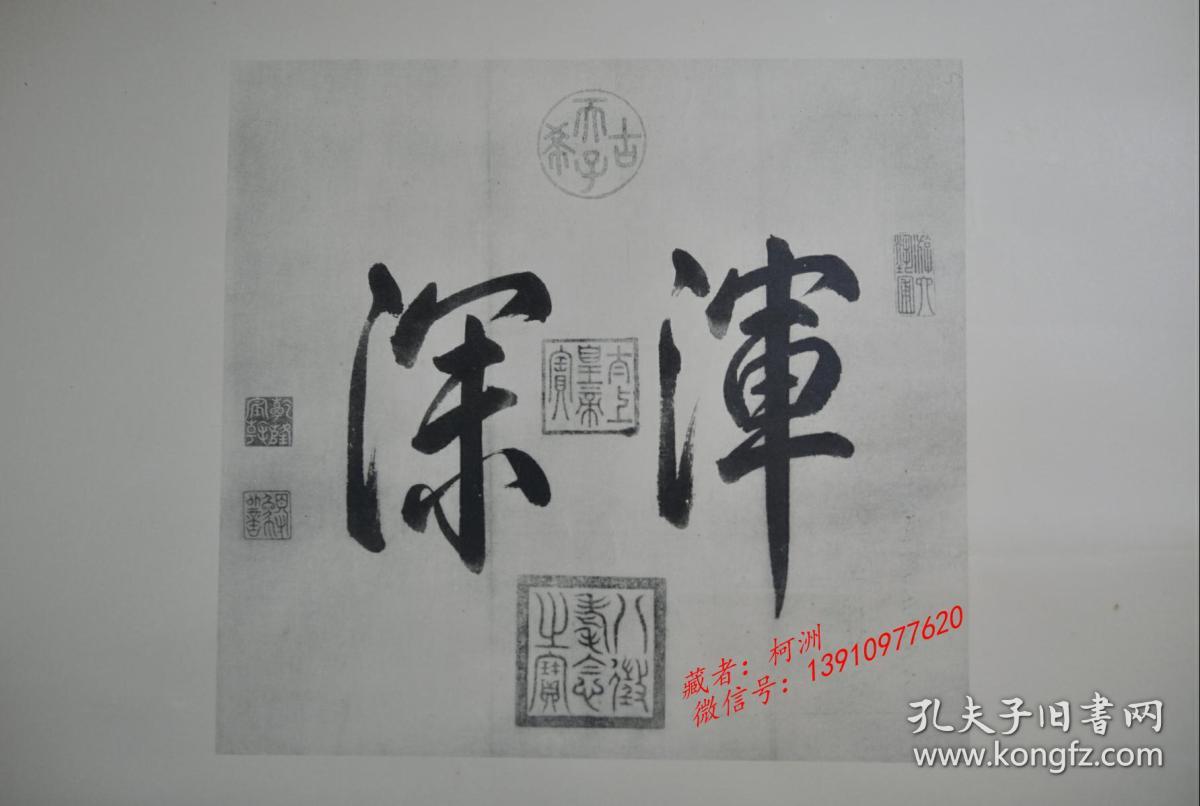 古希天子
游六藝圃
渾深
太上皇帝寶
八徵耄念之寶
藏者：柯洲
微信号：13910977620
孔夫子旧書网
www.kongfz.com